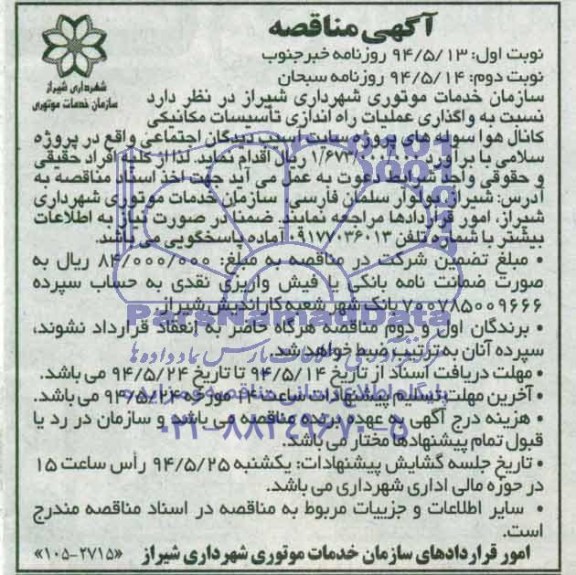 آگهی مناقصه
شهرداری شیراز
سازمان خدمات موتوری
نوبت اول: ۹۴/۵/۱۳ روزنامه خبرجنوب
نوبت دوم: ۹۴/۵/۱۴ روزنامه سبحان
سازمان خدمات موتوری شهرداری شیراز در نظر دارد
نسبت به واگذاری عملیات راه اندازی تأسیسات مکانیکی
کانال هوا سوله های پروژه سایت آسیب دیدگان اجتماعی واقع در پروژه
سلامی با برآورد ریال اقدام نماید. لذا از کلیه افراد حقیقی
و حقوقی واجد شرایط دعوت به عمل می آید جهت اخذ اسناد مناقصه به
آدرس: شیراز بولوار سلمان فارسی سازمان خدمات موتوری شهرداری
شیراز، امور قراردادها مراجعه نمایند. ضمنا در صورت نیاز به اطلاعات
بیشتر با شماره تلفن ۰۹۱۷۷۰۳۶۰۱۳ آماده پاسخگویی می باشد.
• مبلغ تضمین شرکت در مناقصه به مبلغ: ۸۴/۰۰۰/۰۰۰ ریال به
صورت ضمانت نامه بانکی یا فیش واریزی نقدی به حساب سپرده
۷۰۰۷۸۵۰۰۹۶۶۶ بانک شهر شعبه کاراندیش شیراز
• برندگان اول و دوم مناقصه هرگاه حاضر به انعقاد قرارداد نشوند،
سپرده آنان به ترتیب ضبط خواهد شد.
• مهلت دریافت اسناد از تاریخ ۹۴/۵/۱۴ تا تاریخ ۹۴/۵/۲۴ می باشد.
• آخرین مهلت تسلیم پیشنهادات ساعت مورخه ۹۴/۵/۲۴ می باشد.
• هزینه درج آگهی به عهده برنده مناقصه می باشد و سازمان در رد یا
قبول تمام پیشنهادها مختار می باشد.
• تاریخ جلسه گشایش پیشنهادات: یکشنبه ۹۴/۵/۲۵ رأس ساعت ۱۵
در حوزه مالی اداری شهرداری می باشد.
• سایر اطلاعات و جزییات مربوط به مناقصه در اسناد مناقصه مندرج
است.
امور قراردادهای سازمان خدمات موتوری شهرداری شیراز «۱۰۵-۲۷۱۵»
ParsNamadData
پایگاه اطلاع رسانی مناقصه و مزایده
۰۲۱-۸۸۳۴۹۶۷۰-۵